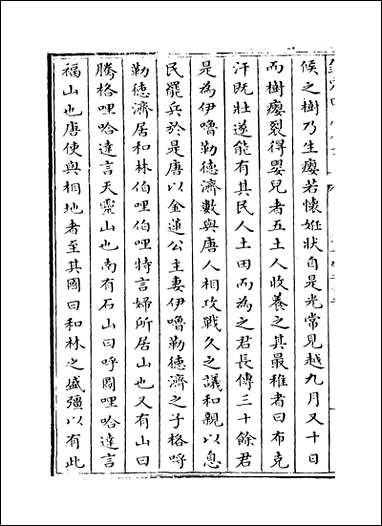 候之樹乃生癭若懷姙狀自是光常見越九月又十日
而樹癭裂得嬰兒者五土人收養之其最稚者曰布克
汗既壯遂能有其民人土田而為之君長傳三十餘君
是為伊嚕勒德濟數與唐人相攻戰久之議和親以息
民罷兵於是唐以金蓮公主妻伊嚕勒德濟之子格呼
勒德濟居和林伯哩伯哩特言婦所居山也又有山曰
騰格哩哈達言天靈山也南有石山曰呼圖哩哈達言
福山也唐使與相地者至其國曰和林之盛彊以有此